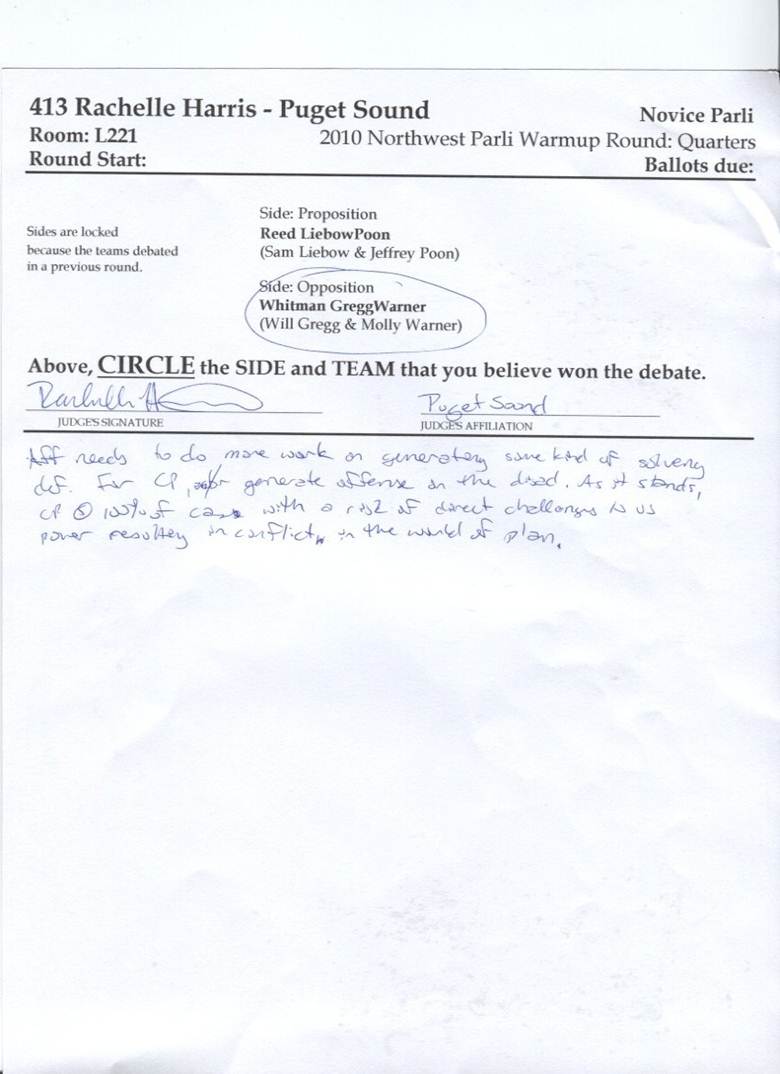 413 Rachelle Harris - Puget Sound
Novice Parli
Room: L221
2010 Northwest Parli Warmup Round: Quarters
Round Start:
Ballots due:
Sides are locked
because the teams debated
in a previous round.
Side: Proposition
Reed LiebowPoon
(Sam Liebow & Jeffrey Poon)
Side: Opposition
Whitman GreggWarner
(Will Gregg & Molly Warner)
Above, CIRCLE the SIDE and TEAM that you believe won the debate.
Puget Sound
JUDGE'S SIGNATURE
JUDGE'S AFFILIATION
Aff needs to do more work on generating some kind of solvency
def. For CP, generate offense on the disad. As it stands,
CP Ⓢ 100% of case with a risk of direct challenges to US
power resulting in conflict, in the world of plan.